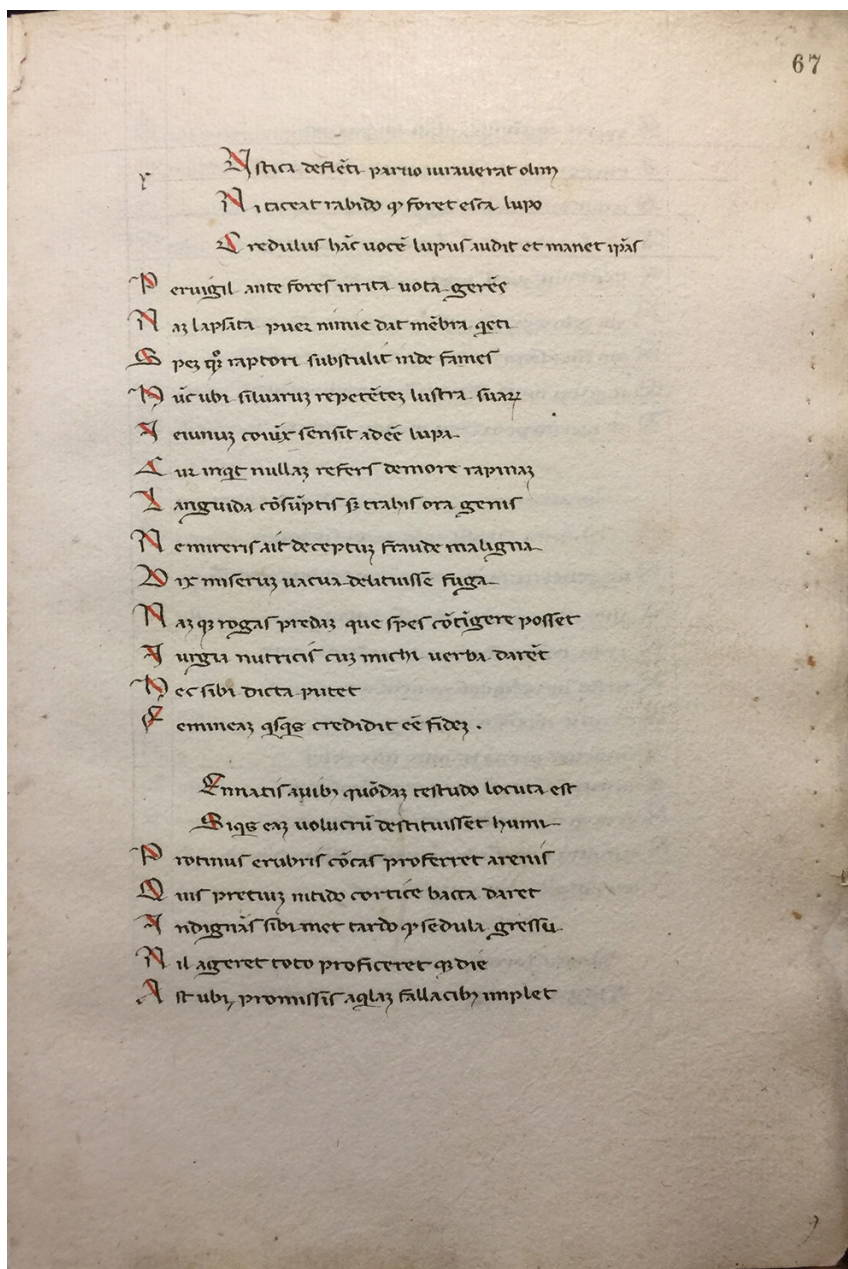 67
r
Vstica deflēti paruo iuraverat olim
Ni taceat rabido ꝙ foret esca lupo
Credulus hāc uocē lupus audit et manet ip̄as
Peruigil ante fores irrita uota gerēs
Naʒ lapsata puer nimie dat mēbra q̇eti
Speʒ qꝫ raptori substulit inde fames
Nūc ubi siluaruʒ repetēteʒ lustra suaꝝ
Ieiunuʒ coniūx sensit adeē lupa
Cur inqt nullaʒ refers de more rapinaʒ
Languida cōsūptis sꝫ trahis ora genis
Ne mireris ait deceptuʒ fraude maligna
Vix miseruʒ uacua delituisse fuga
Naʒ qꝫ rogas predaʒ que spes cōtīgere posset
Iurgia nutricis cuʒ michi uerba darēt
Nec sibi dicta putet
Femineaʒ qsqs credidit eē fideʒ .
Ennatis auibꝫ quōdaʒ testudo locuta est
Siqs eaʒ uolucrū destituisset humi
Protinus erubris cōcas proferret arenis
Quis pretiuʒ nitido cortice bacca daret
Indignās sibi met tardo ꝙ sedula gressu
Nil ageret toto proficeret qꝫ die
Ast ubi promissis aqlaʒ fallacibꝫ implet